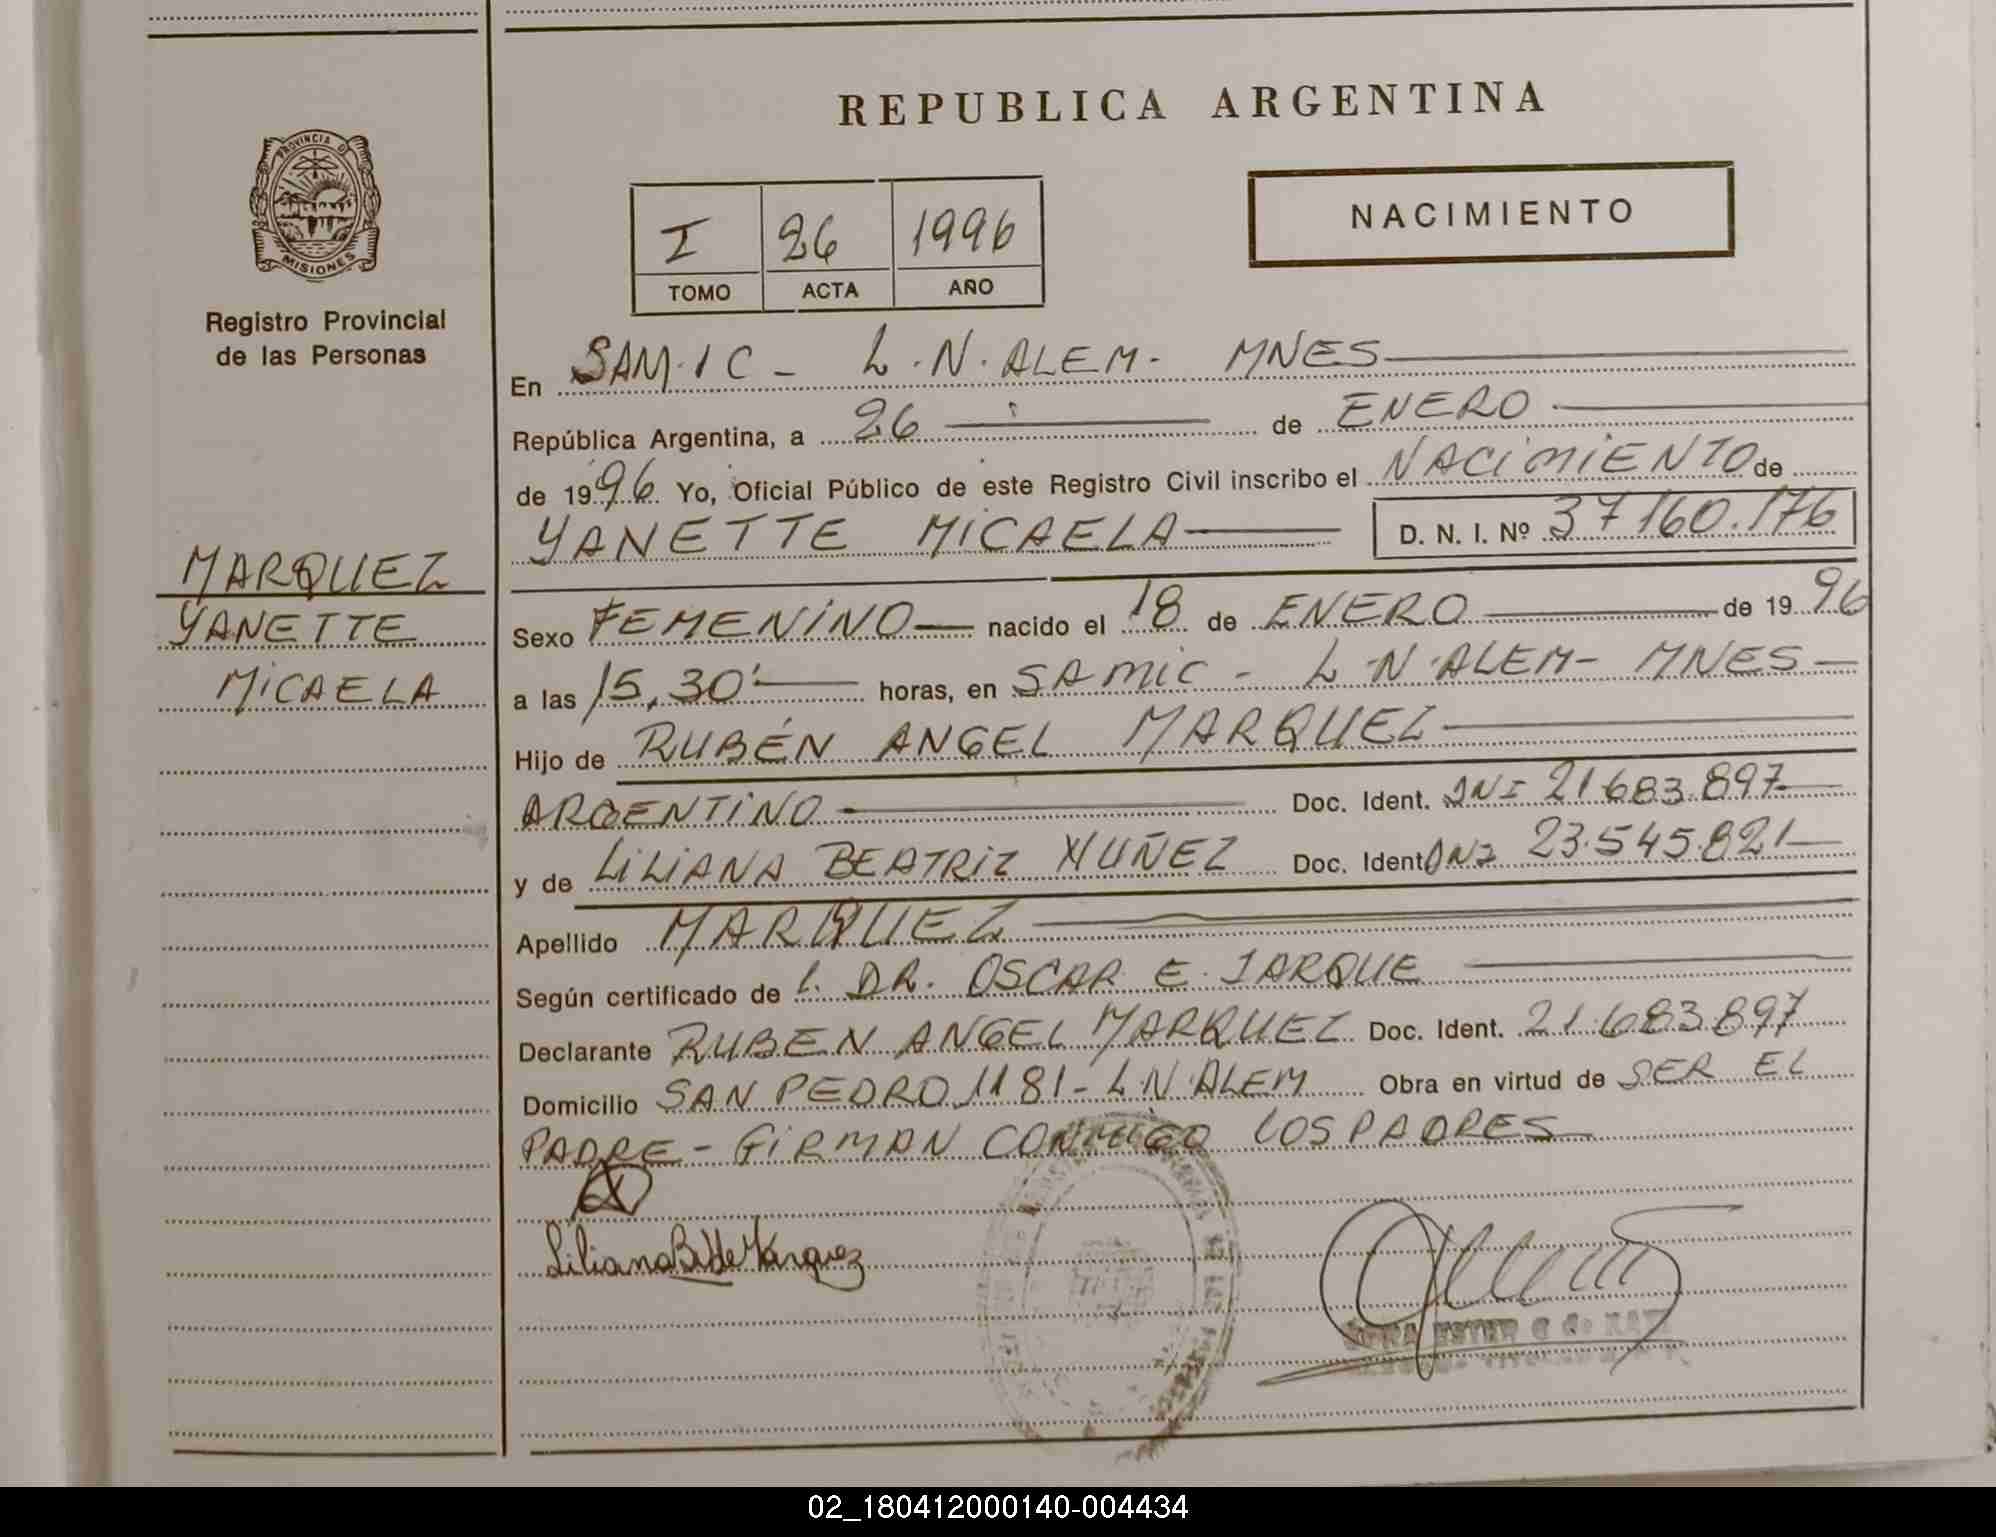 REPUBLICA ARGENTINA
PROVINCIA D
MISIONES
Registro Provincial
de las Personas
I 26 1996
TOMO ACTA AÑO
NACIMIENTO
En SAM.IC - L.N.ALEM - MNES
República Argentina, a 26 de ENERO
de 1996 Yo, Oficial Público de este Registro Civil inscribo el NACIMIENTO de
YANETTE MICAELA D. N. I. Nº 37160.176
MARQUEZ
YANETTE
MICAELA
Sexo FEMENINO nacido el 18 de ENERO de 1996
a las 15,30' horas, en SAMIC - L N ALEM - MNES
Hijo de RUBÉN ANGEL MARQUEZ
ARGENTINO Doc. Ident. DNI 21.683.897
y de LILIANA BEATRIZ NUÑEZ Doc. Ident DNI 23.545.821
Apellido MARQUEZ
Según certificado de L. DR. OSCAR E. JARQUE
Declarante RUBEN ANGEL MARQUEZ Doc. Ident. 21.683.897
Domicilio SAN PEDRO 1181 - L.N.ALEM Obra en virtud de SER EL
PADRE - FIRMAN CONMIGO LOS PADRES
Liliana B. de Marquez
ESTER
02_180412000140-004434